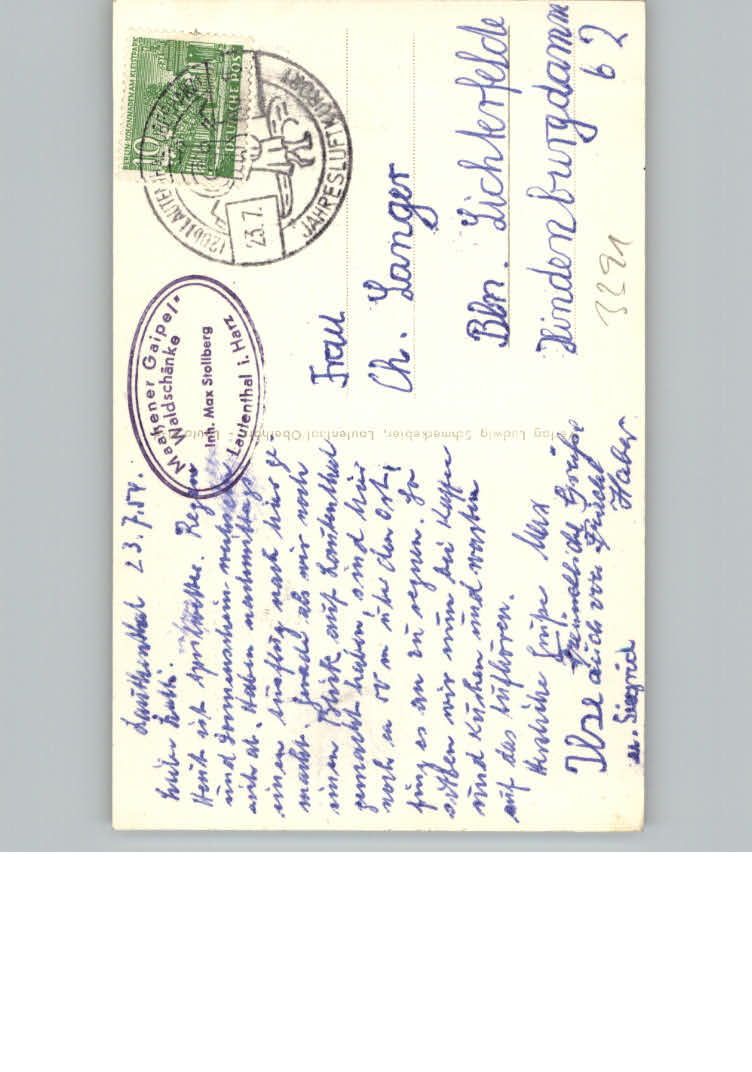 Lautenthal 23.7.54.
Heute ist Regen
und Sonnenschein
ab. Haben nachmittags
einen Ausflug nach hier ge-
macht. Gerade als wir noch
einen Blick auf Lautenthal
gemacht haben und hier
noch ca 100 m über den Ort,
fing es an zu regnen. So
sitzen wir nun bei Kaffee
und Kuchen und warten
auf das Aufhören.
Herzliche Grüße Max
Ilse
Freundliche Grüße
auch von
Haber.
u. Siegrid
Maaßener Gaipel-
Waldschänke
Inh. Max Stollberg
Lautenthal i. Harz
Verlag Ludwig Schmerkebier, Lautenthal/Oberharz
BERLIN · KOLONNADEN AM KLEISTPARK
10
DEUTSCHE POST
(20b) LAUTENTHAL
23.7.
JAHRESLUFTKURORT
Frau
Ch. Langer
Bln. Lichterfelde
Hindenburgdamm
62
3291